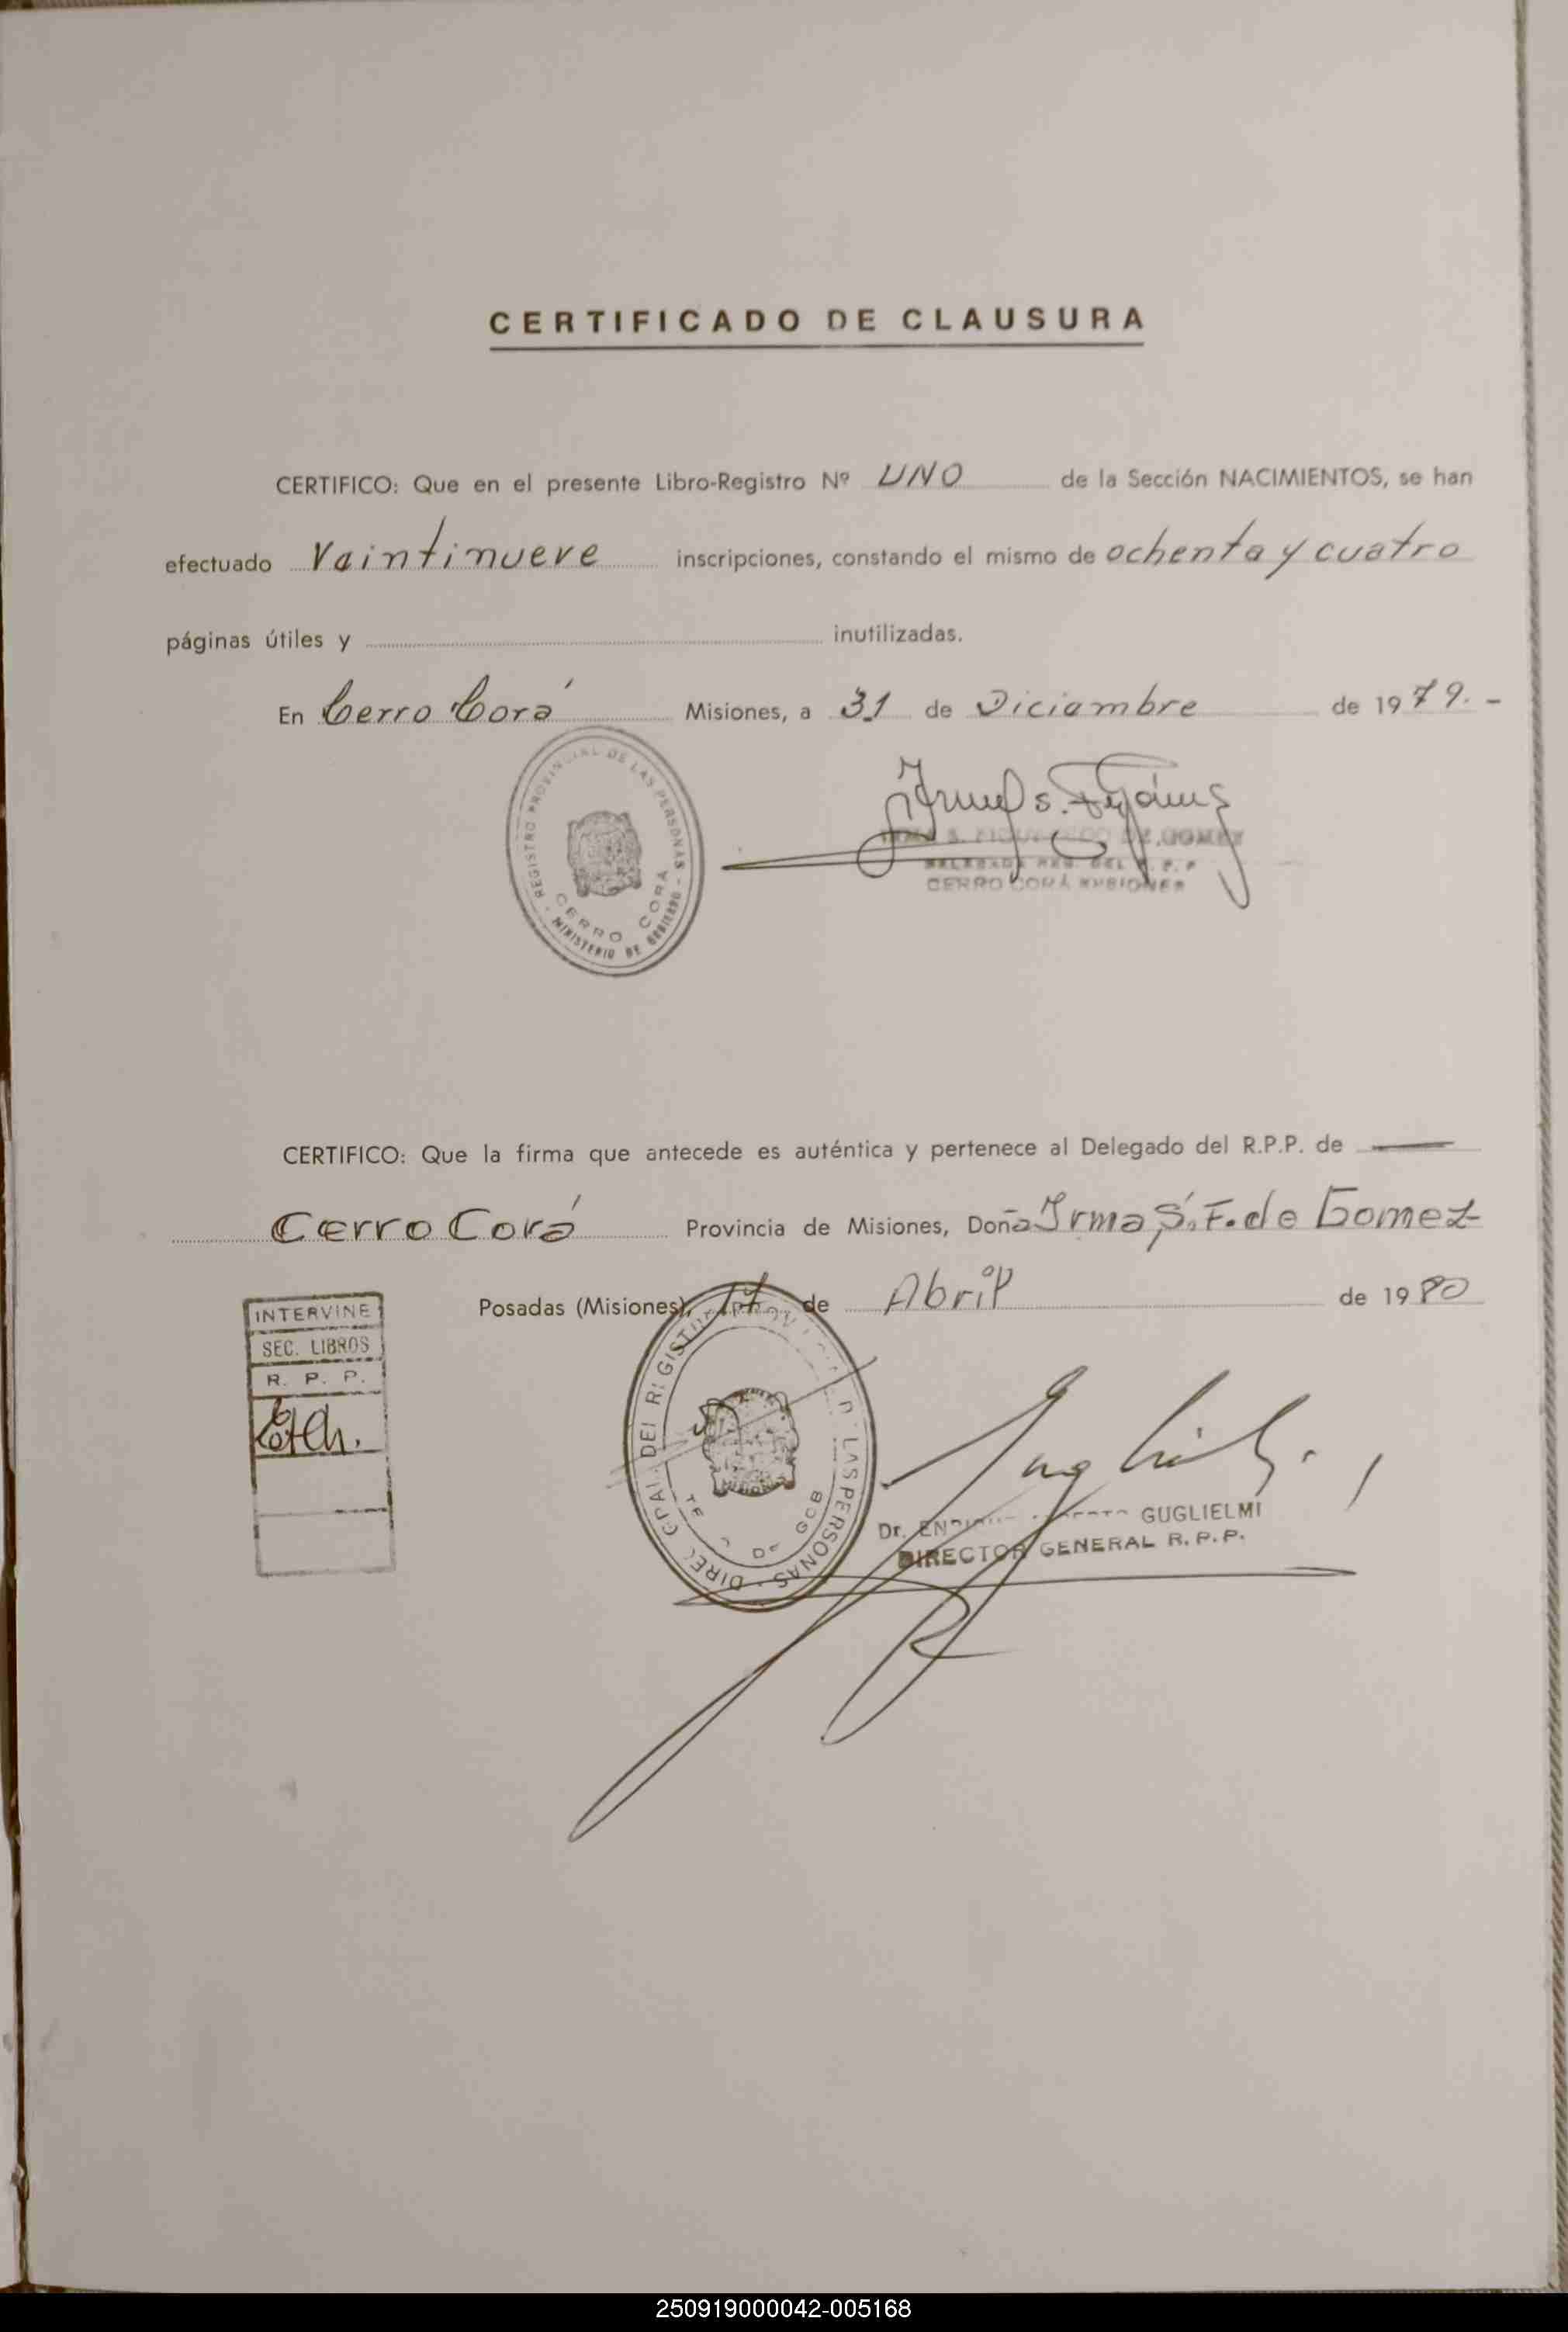 CERTIFICADO DE CLAUSURA
CERTIFICO: Que en el presente Libro-Registro Nº UNO de la Sección NACIMIENTOS, se han
efectuado Vaintinueve inscripciones, constando el mismo de ochenta y cuatro
páginas útiles y inutilizadas.
En Cerro Corá Misiones, a 31 de Diciambre de 1979.-
REGISTRO PROVINCIAL DE LAS PERSONAS - MINISTERIO DE GOBIERNO -
CERRO CORÁ
S. DE GOMEZ
DEL R. P. P
CERRO CORÁ MISIONES
CERTIFICO: Que la firma que antecede es auténtica y pertenece al Delegado del R.P.P. de
Cerro Corá Provincia de Misiones, Doña Irma S. F. de Gomez
Posadas (Misiones), 17 de Abril de 1980
INTERVINE
SEC. LIBROS
R. P. P.
DIREC GRAL. DEL REGISTRO PROV DE LAS PERSONAS
Dr. GUGLIELMI
DIRECTOR GENERAL R.P.P.
250919000042-005168